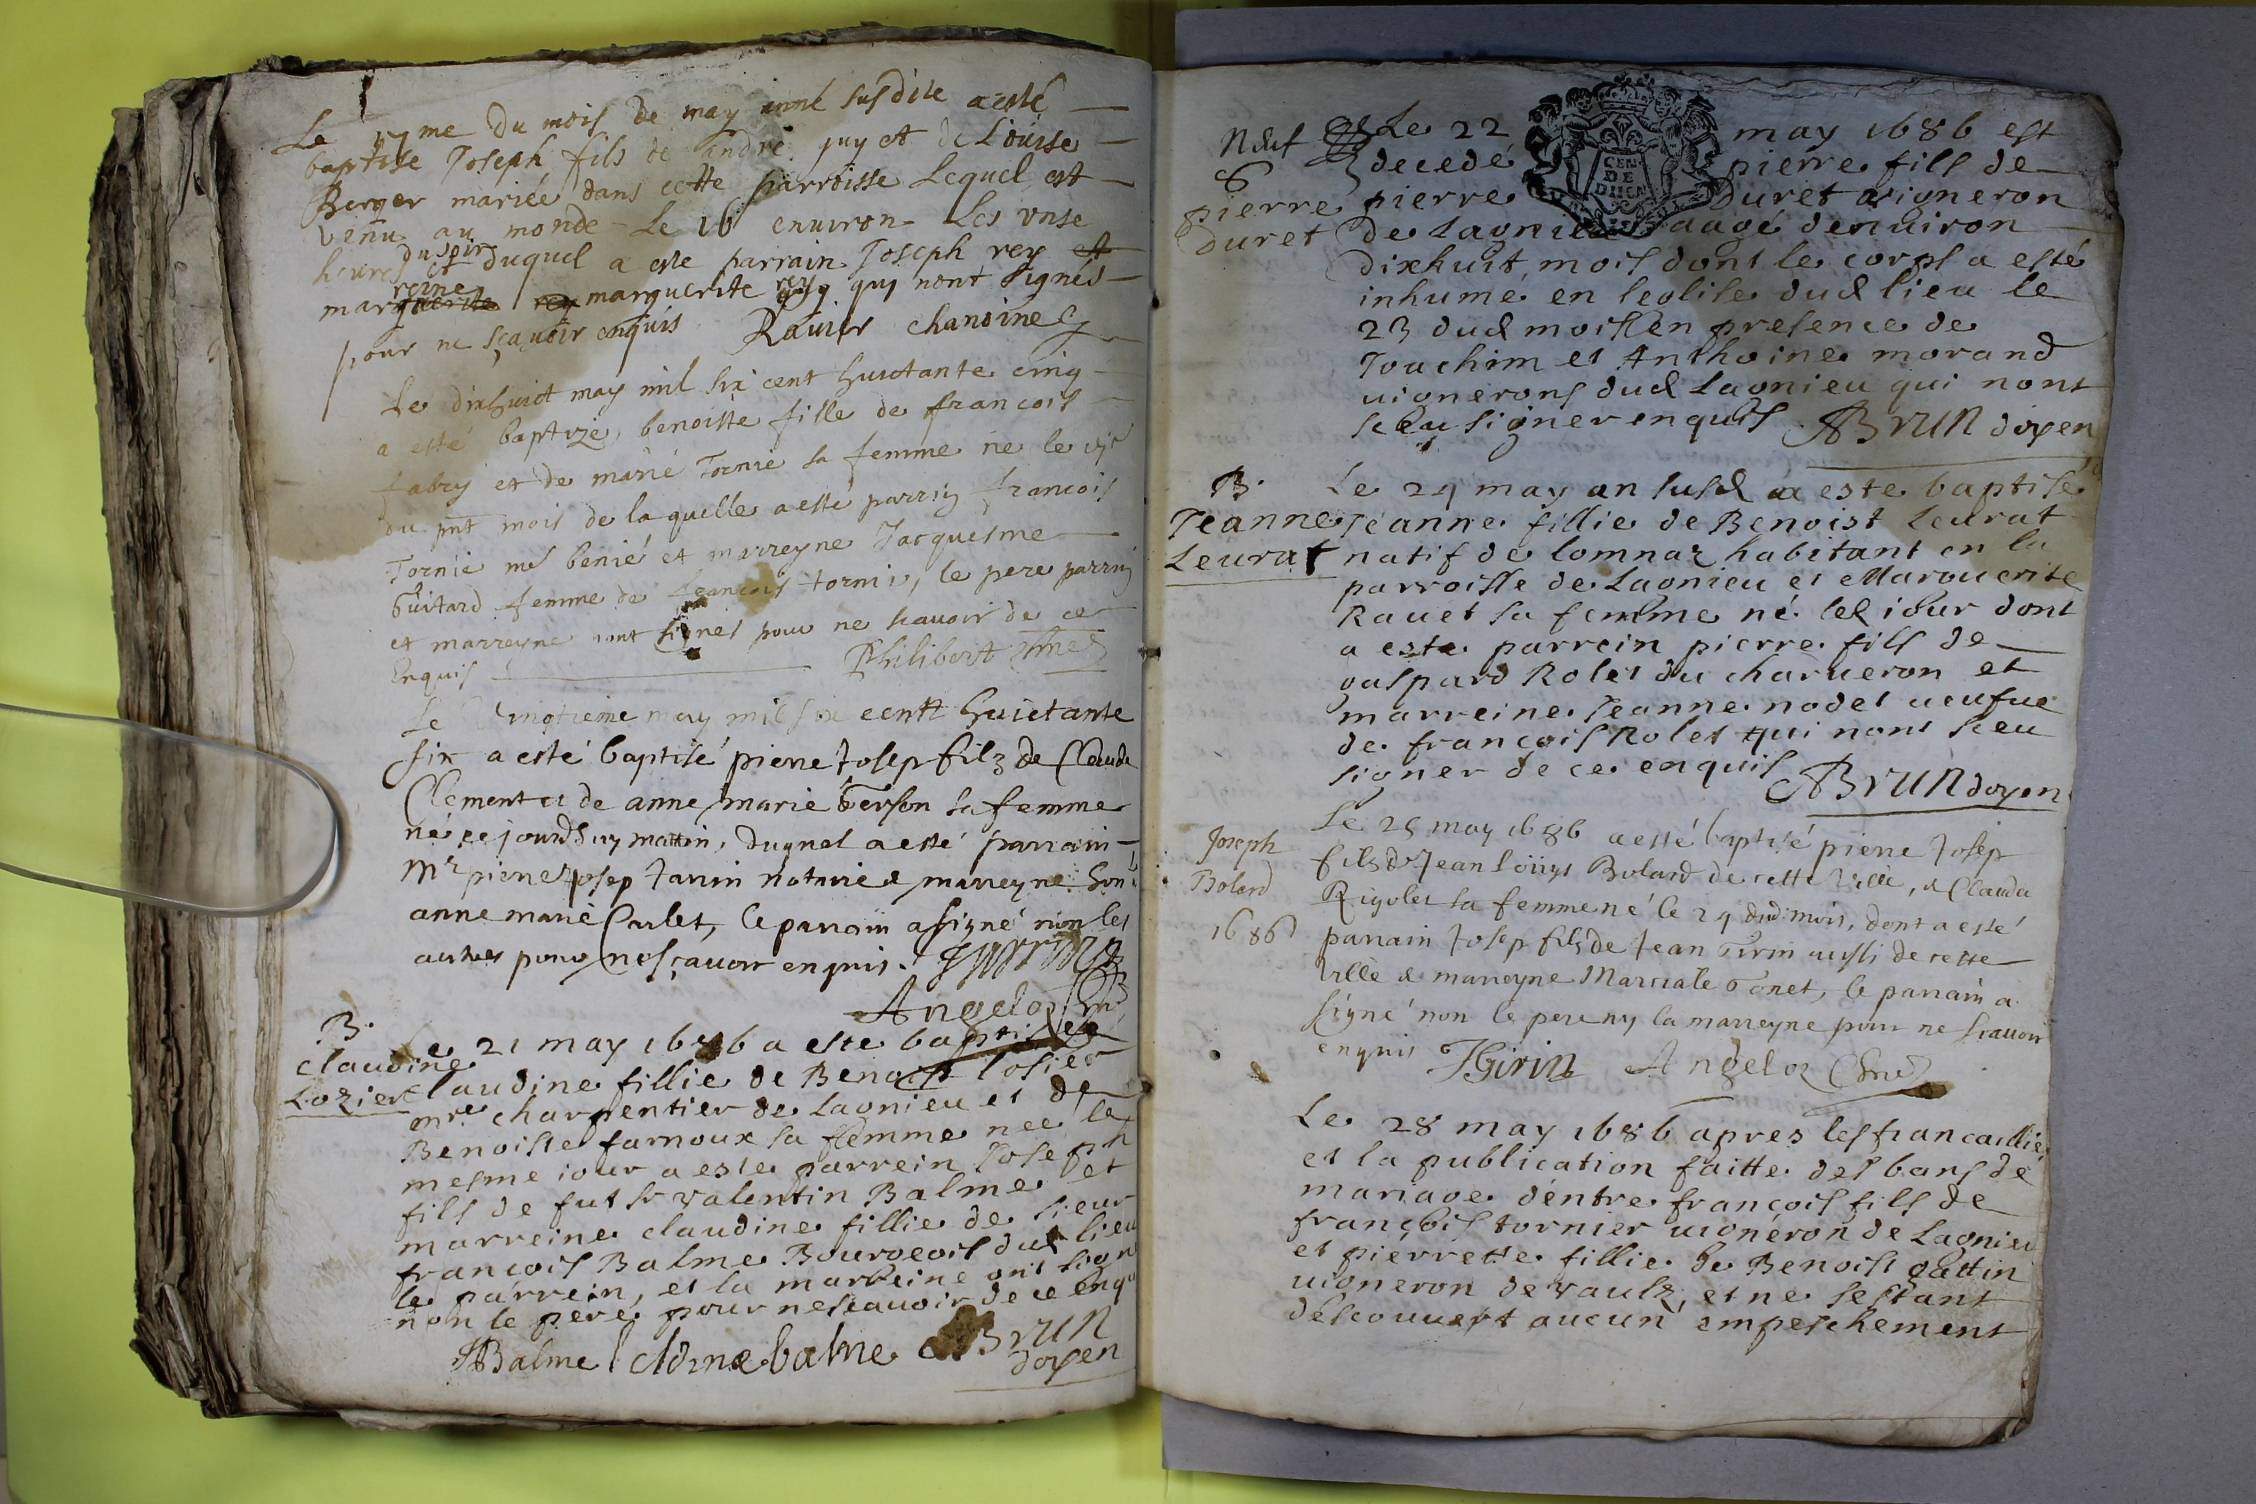 Le 17me du mois de may anné susdite a esté
baptise Joseph fils de andré guy et de Louise
Berger mariée dans cette parroisse Lequel est
venu au monde Le 16 enuiron Les vnse
heures du soir et duquel a este parrain Joseph rey et
mar reine marguerite rey quy nont signes
pour ne sçauoir enquis Rauier chanoine
Le dixhuict may mil six cent huictante cinq
a esté baptizé benoiste fille de francois
fabry et de marie Tornie sa femme ne le
du pnt mois de laquelle a este parrin francois
Tornie et marreyne Jacquesme
Guitard femme de francois tornie, le pere parrin
et marreyne nont signes pour ne scauoir de ce
Enquis Philibert
Le vingtieme may mil six centz huictante
six a esté baptisé pierre Josep filz de Claude
Clement et de anne marie Gerson sa femme
né ce jourdhuy mattin, duquel a esté parrain
Mr pierre Josep Janin notaire & marreyne hon
anne marie Carlet, le parrain a signé non les
autres pour ne sçauoir enquis.
Angeloz
B.
claudine
Lozier
Le 21 may 1686 a este baptisée
claudine fillie de Benoist losier
mre charpentier de Lagnieu et de
Benoiste farnoux sa femme nee le
mesme iour a este parrein Joseph
fils de fut sr valentin Balme et
marreine claudine fillie de sieur
francois Balme Bourgeois dud lieu
le parrein, et la marreine ont signé
non le pere pour ne scauoir de ce enq
JBalme cldine balme ABrun
doyen
Nduf
6
pierre
duret
Le 22 may 1686 est
decedé pierre fils de
pierre Duret vigneron
de Lagnieu aagé denuiron
dixhuit mois dont le corps a esté
inhumé en leglise dud lieu le
23 dud mois en presence de
Jouachim et Anthoine morand
uignerons dud Lagnieu qui nont
sceu signer enquis ABrun doyen
B.
Jeanne
Leurat
Le 24 may an susd a este baptisé
Jeanne fillie de Benoist Leurat
natif de lomnaz habitant en la
parroisse de Lagnieu et Marguerite
Rauet sa femme né led iour dont
a este parrein pierre fils de
gaspard Rolet du charueron et
marreine Jeanne nodet ueufue
de françois Rolet qui nont sceu
signer de ce enquis ABrun doyen
Joseph
Bolard
1686
Le 25 may 1686 a esté baptisé pierre Josep
fils de Jean Loüys Bolard de cette ville, & Clauda
Rigolet sa femme né le 24 dud mois, dont a esté
parrain Josep fils de Jean Girin aussi de cette
ville & marreyne Marciale Gonet, le parrain a
signé non le pere ny la marreyne pour ne scauoir
enquis JGirin Angeloz
Le 28 may 1686 apres les francaillies
et la publication faitte des bans de
mariage dentre françois fils de
françois tornier uigneron de Lagnieu
et pierrette fillie de Benoist gattin
uigneron de vaulx, et ne sestant
descouuert aucun empeschement